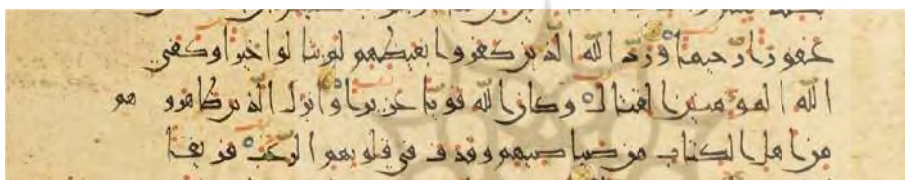 غفورا رحيما ورد الله الذين كفروا بغيظهم لم ينالوا خيرا وكفى
الله المؤمنين القتال وكان الله قويا عزيزا وأنزل الذين ظاهرو هم
من أهل الكتاب من صياصيهم وقذف في قلوبهم الرعب فريقا